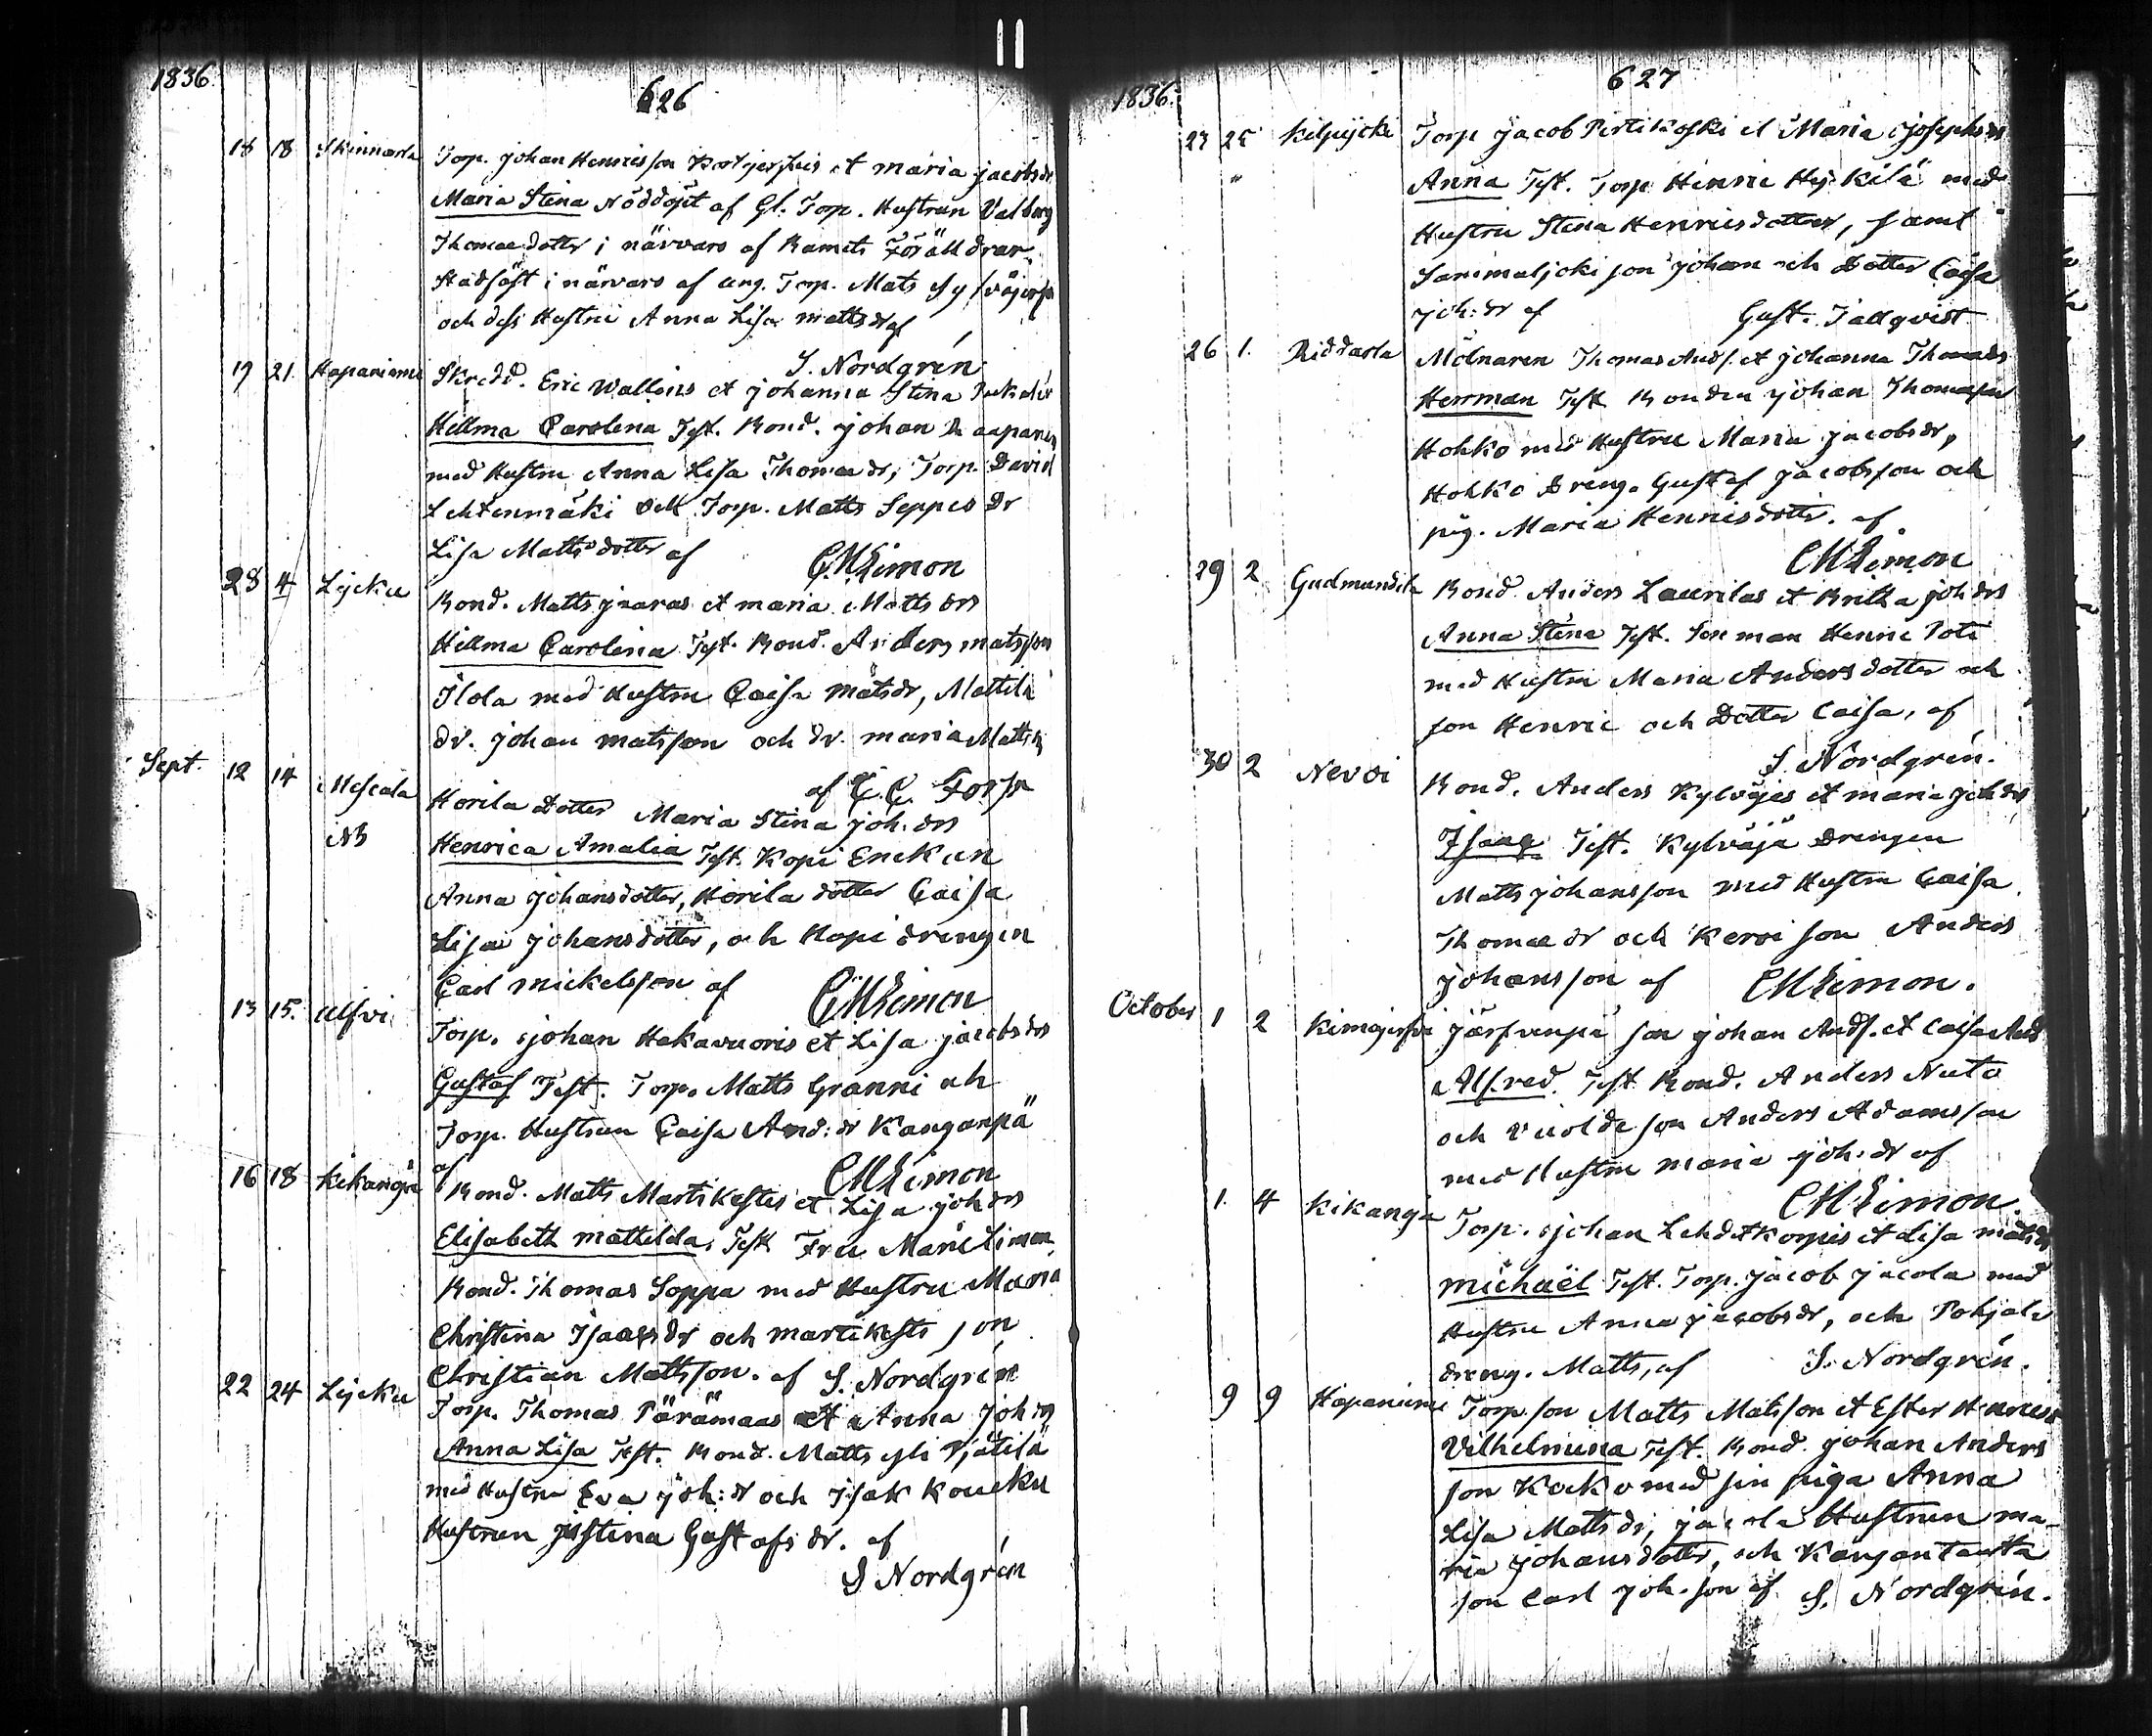 1836.
626
18 18 Skinnarla Torp. Johan Henricsson et Maria Jacobsdr
Maria Stina Nöddöpt af Gl. Torp. Hustrun Valborg
Thomaedotter i närvaro af Barnets Föräldrar.
Stadfäst i närvaro af ung. Torp. Mats
och dess Hustru Anna Lisa Mattsdr af
S. Nordgrén
19 21. Hapaniemi Skredd. Eric Wallenius et Johanna Stina
Hillma Carolina Test. Bond. Johan Haapanen
med Hustru Anna Lisa Thomaedr, Torp. David
Lehtenmäki och Torp. Matts Seppes Dr
Lisa Mattsdotter af CMLimon
28 4 Lycku Bond. Matts Jaaras et Maria Matts drs
Hillma Carolina Test. Bond. Anders Matsson
Ilola med Hustru Caisa Matsdr, Mattila
dr. Johan Matsson och dr. Maria Matts dr
af C. C. Forss
Sept. 12 14 Mescala Horila Dotter Maria Stina Joh. drs
NB Henrica Amalia Test. Kopi Enckan
Anna Johansdotter, Horila dotter Caisa
Lisa Johansdotter, och Kopi drengen
Carl Mickelsson af CMLimon
13 15. Ulfvi Torp. Johan Hakavuoris et Lisa Jacobsdrs
Gustaf Test. Torp. Matts Granni och
Torp. Hustrun Caisa And:dr Kanganpä
af CMLimon
16 18 Kikanoja Bond. Matts Martikestes et Lisa Joh drs
Elisabeth Mattilda, Test Fru Marie Limon,
Bond. Thomas Soppa med Hustru Maria
Christina Isaacsdr och Martikests son
Christian Mattsson. af S. Nordgrén
22 24 Lycku Torp. Thomas Pärämaas et Anna Joh drs
Anna Lisa Test. Bond. Matts yli Pjätilä
med Hustru Eva Joh:dr och Isak Koucku
Hustrun Justina Gustafs dr. af
S Nordgrén
1836.
627
23 25 Kilpijocki Torp Jacob Pertikoski et Maria Josephsdrs
" Anna Test. Torp Henric Hejkilä med
Hustru Stina Henricsdotter, samt
Sarimaljoki son Johan och Dotter Caisa
Joh:dr af Gust. Tallqvist
26 1. Riddarla Mölnaren Thomas Ands. et Johanna Thomaedrs
Herrman Test Bonden Johan Thomasson
Hohko med Hustru Maria Jacobsdr,
Hohko Dreng. Gustaf Jacobsson och
pig. Maria Henricsdottr. af
CMLimon
29 2 Gudmundila Bond. Anders Laurilas et Britha Joh drs
Anna Stina Test. Son man Henric Poti
med Hustru Maria Andersdotter och
son Henric och Dotter Caisa, af
S. Nordgrén.
30 2 Nervoi Bond. Anders Kylväjes et Maria Joh drs
Isaac Test. Kylväjä Drengen
Matts Johansson med Hustru Caisa
Thomaedr och Kervi son Anders
Johansson af CMLimon.
October 1 2 Kimojerfvi Järfvenpä son Johan Ands. et Caisa Ands
Alfred. Test Bond. Anders Nuto
och Viiolde son Anders Adamsson
med Hustru Maria Joh:dr af
CMLimon.
1. 4 Kikanoja Torp. Johan Lehdetkorpis et Lisa Matsdr
Michaël Test. Torp. Jacob Jacola med
Hustru Anna Jacobsdr, och Pohjala
dreng. Matts, af S. Nordgrén.
9 9 Hapaniemi Torp son Matts Matsson et Ester Henricsdr
Vilhelmina Test. Bond. Johan Anders
son Kocko med sin piga Anna
Lisa Mattsdr, Jacola Hustrun Ma-
ria Johansdotter, och Kangantausta
son Carl Joh. son af S. Nordgrén.